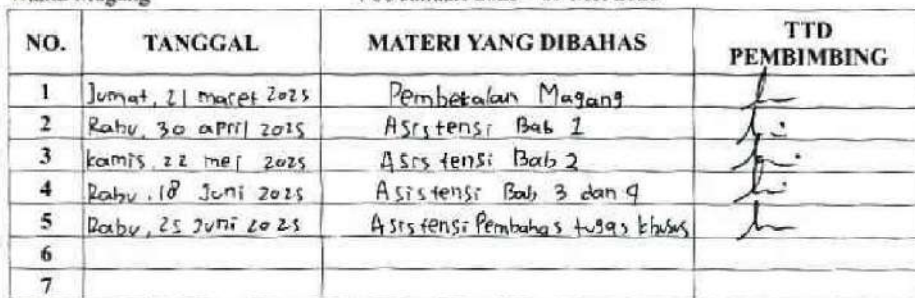 NO. TANGGAL MATERI YANG DIBAHAS TTD PEMBIMBING
1 Jumat, 21 maret 2025 Pembekalan Magang
2 Rabu, 30 april 2025 Asistensi Bab 1
3 kamis, 22 mei 2025 Asistensi Bab 2
4 Rabu, 18 Juni 2025 Asistensi Bab 3 dan 4
5 Rabu, 25 Juni 2025 Asistensi Pembahas tugas khusus
6
7